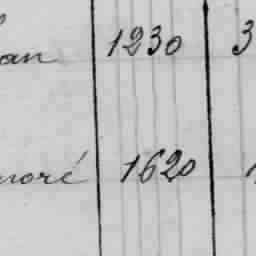 an 1230 3
noré 1620